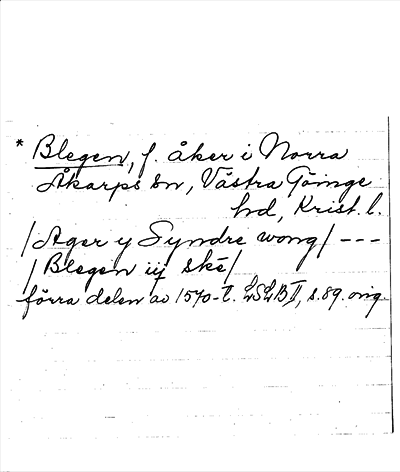 * Blegen, f. åker i Norra
Åkarps sn, Västra Göinge
hd, Krist. l.
/Ager y Syndre wong/ ---
/Blegen iij skē/
förra delen av 1570-t. LSLB II, s. 89. orig.